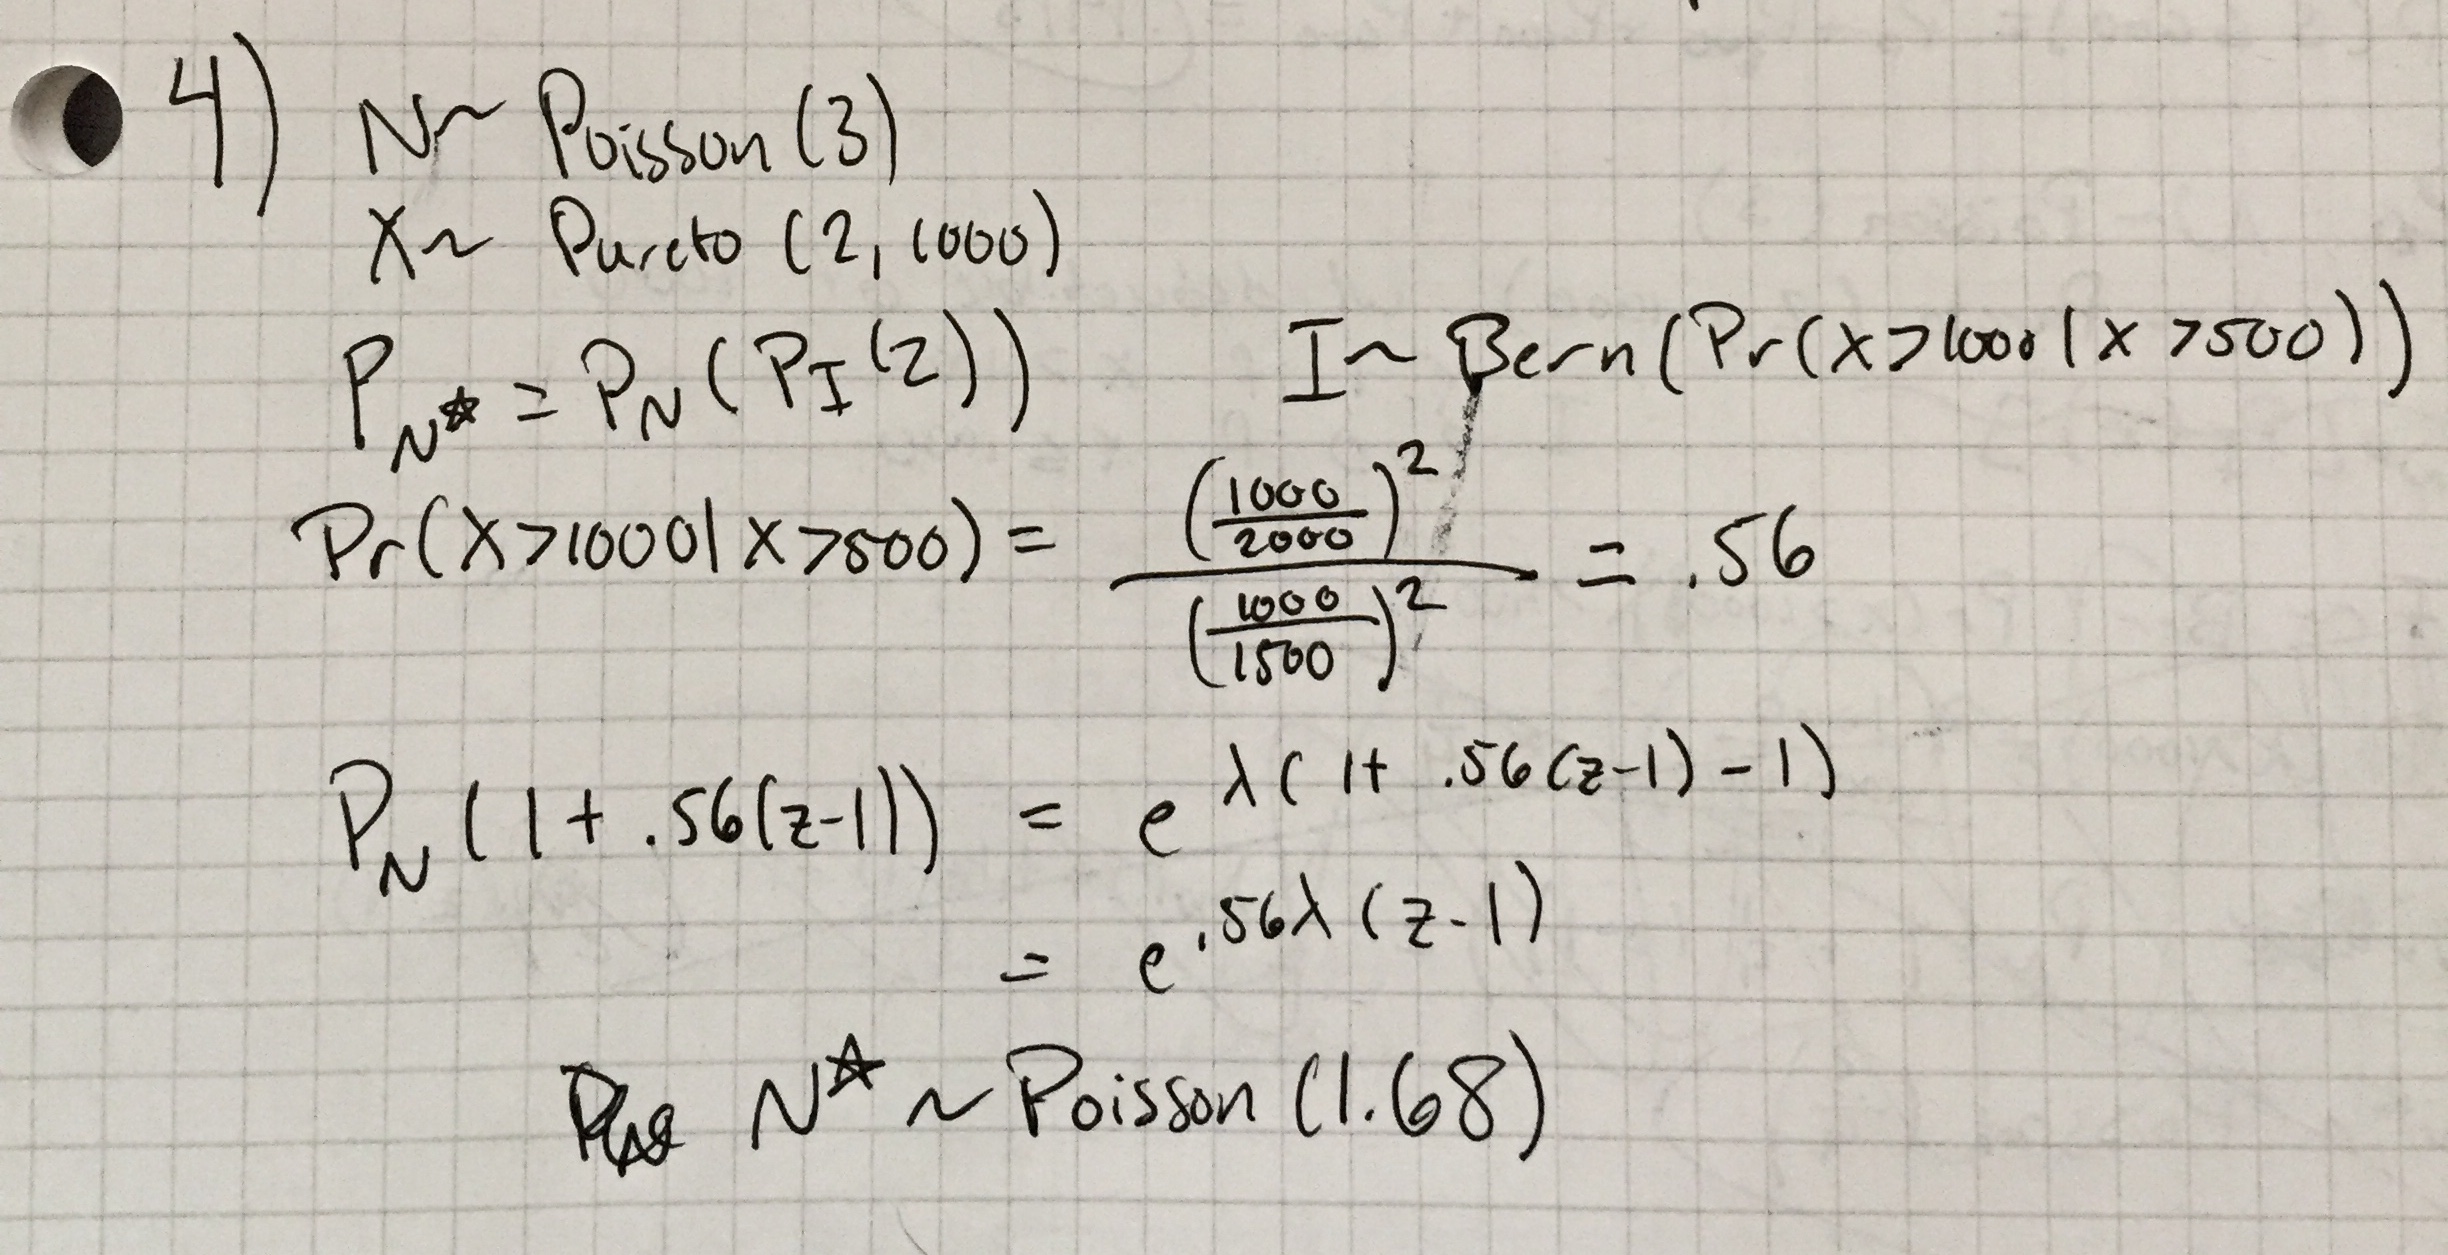 4) N ~ Poisson (3)
X ~ Pareto (2, 1000)
P_N☆ = P_N (P_I (z)) I ~ Bern (Pr(X>1000 | X>500))
Pr(X>1000 | X>500) = (1000/2000)^2 / (1000/1500)^2 = .56
P_N (1 + .56(z-1)) = e^λ(1 + .56(z-1) - 1)
= e^.56λ(z-1)
N☆ ~ Poisson (1.68)